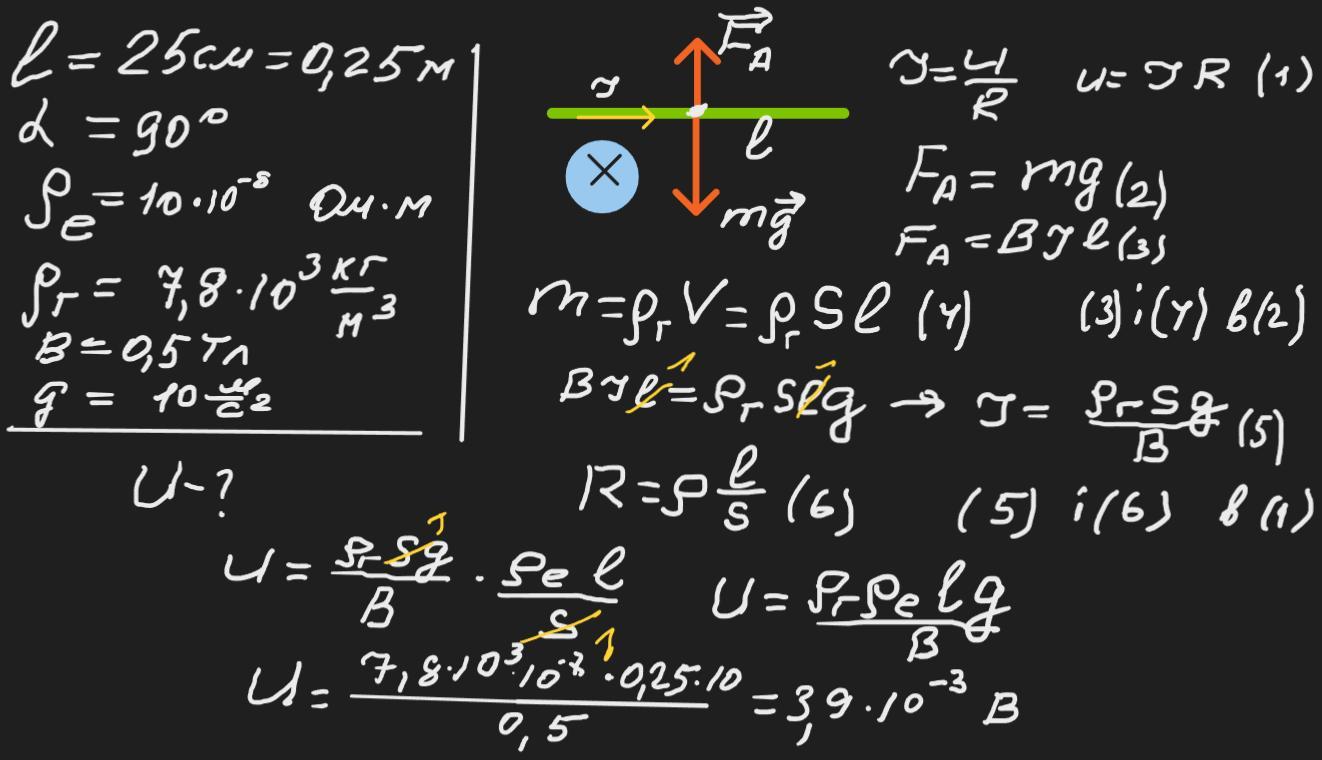 l = 25см = 0,25 м
α = 90°
ρe = 10·10⁻⁸ Ом·м
ρг = 7,8·10³ кг/м³
B = 0,5 Тл
g = 10 м/с²
U - ?
F⃗A
I
l
mg⃗
I = U/R U = I R (1)
FA = mg (2)
FA = B I l (3)
m = ρг V = ρг S l (4) (3) i (4) в (2)
B I l = ρг S l g → I = ρг S g / B (5)
1 1
R = ρ l/S (6) (5) i (6) в (1)
U = ρг S g / B · ρe l / S U = ρг ρe l g / B
1 1
U = 7,8·10³·10⁻⁷·0,25·10 / 0,5 = 3,9·10⁻³ В